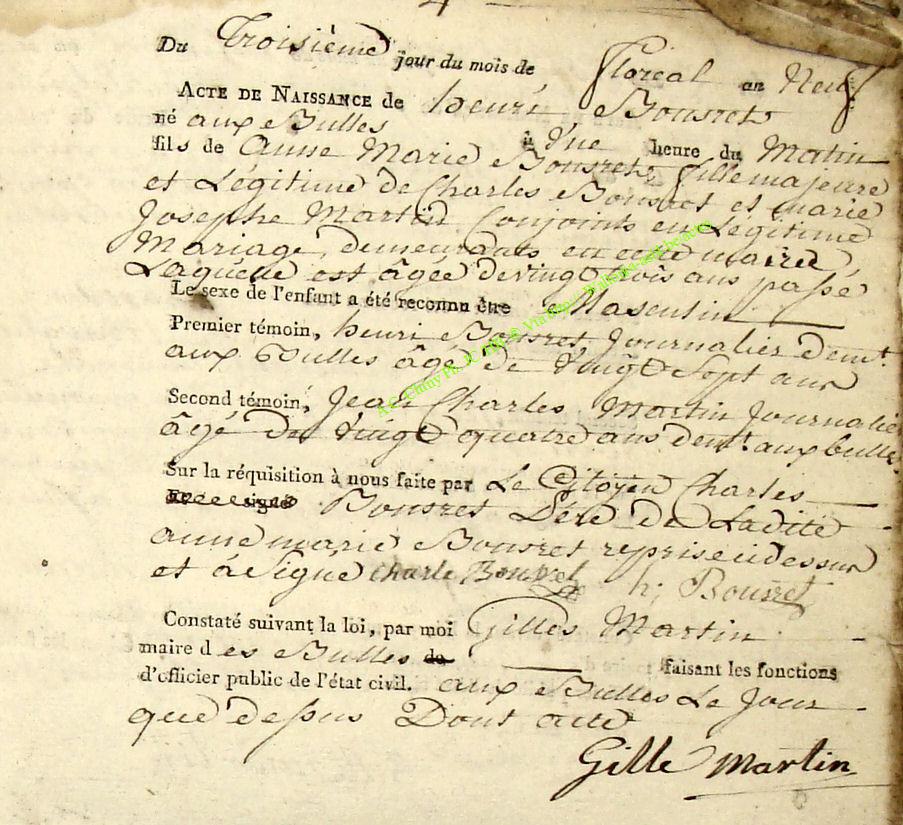 Du Troisième jour du mois de floreal an Neuf
ACTE DE NAISSANCE de henri Bousret
né aux Bulles à Une heure du Matin
fils de Anne Marie Bousret, fille majeure
et Légitime de Charles Bousret et marie
Josephe Martin Conjoints en Légitime
Mariage, demeurants en cette mairie
Laquelle est âgée de vingt trois ans passé
Le sexe de l'enfant a été reconnu être Masculin
Premier témoin, henri Bousret, Journalier demt
aux Bulles âgé de Vingt Sept ans
Second témoin, Jean Charles Martin Journalier
âgé de Vingt quatre ans demt aux bulles
Sur la réquisition à nous faite par Le Citoyen Charles
Bousret Père de Ladite
anne marie Bousret reprise cidessus
et à Signé Charle Bousret h; Bousret
Constaté suivant la loi, par moi Gilles Martin
maire des Bulles faisant les fonctions
d'officier public de l'état civil. aux Bulles Le Jour
que dessus Dont acte
Gille Martin